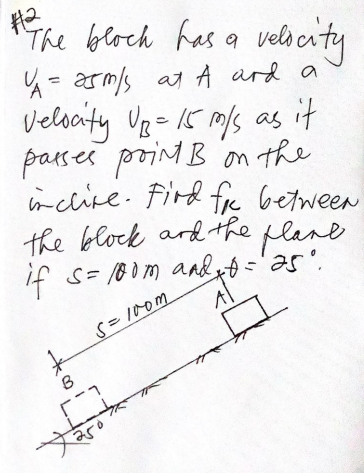 #2
The block has a velocity
V_A = 25 m/s at A and a
velocity V_B = 15 m/s as it
passes point B on the
incline. Find fk between
the block and the plane
if s = 100m and θ = 25°.
S = 100m
A
B
25°